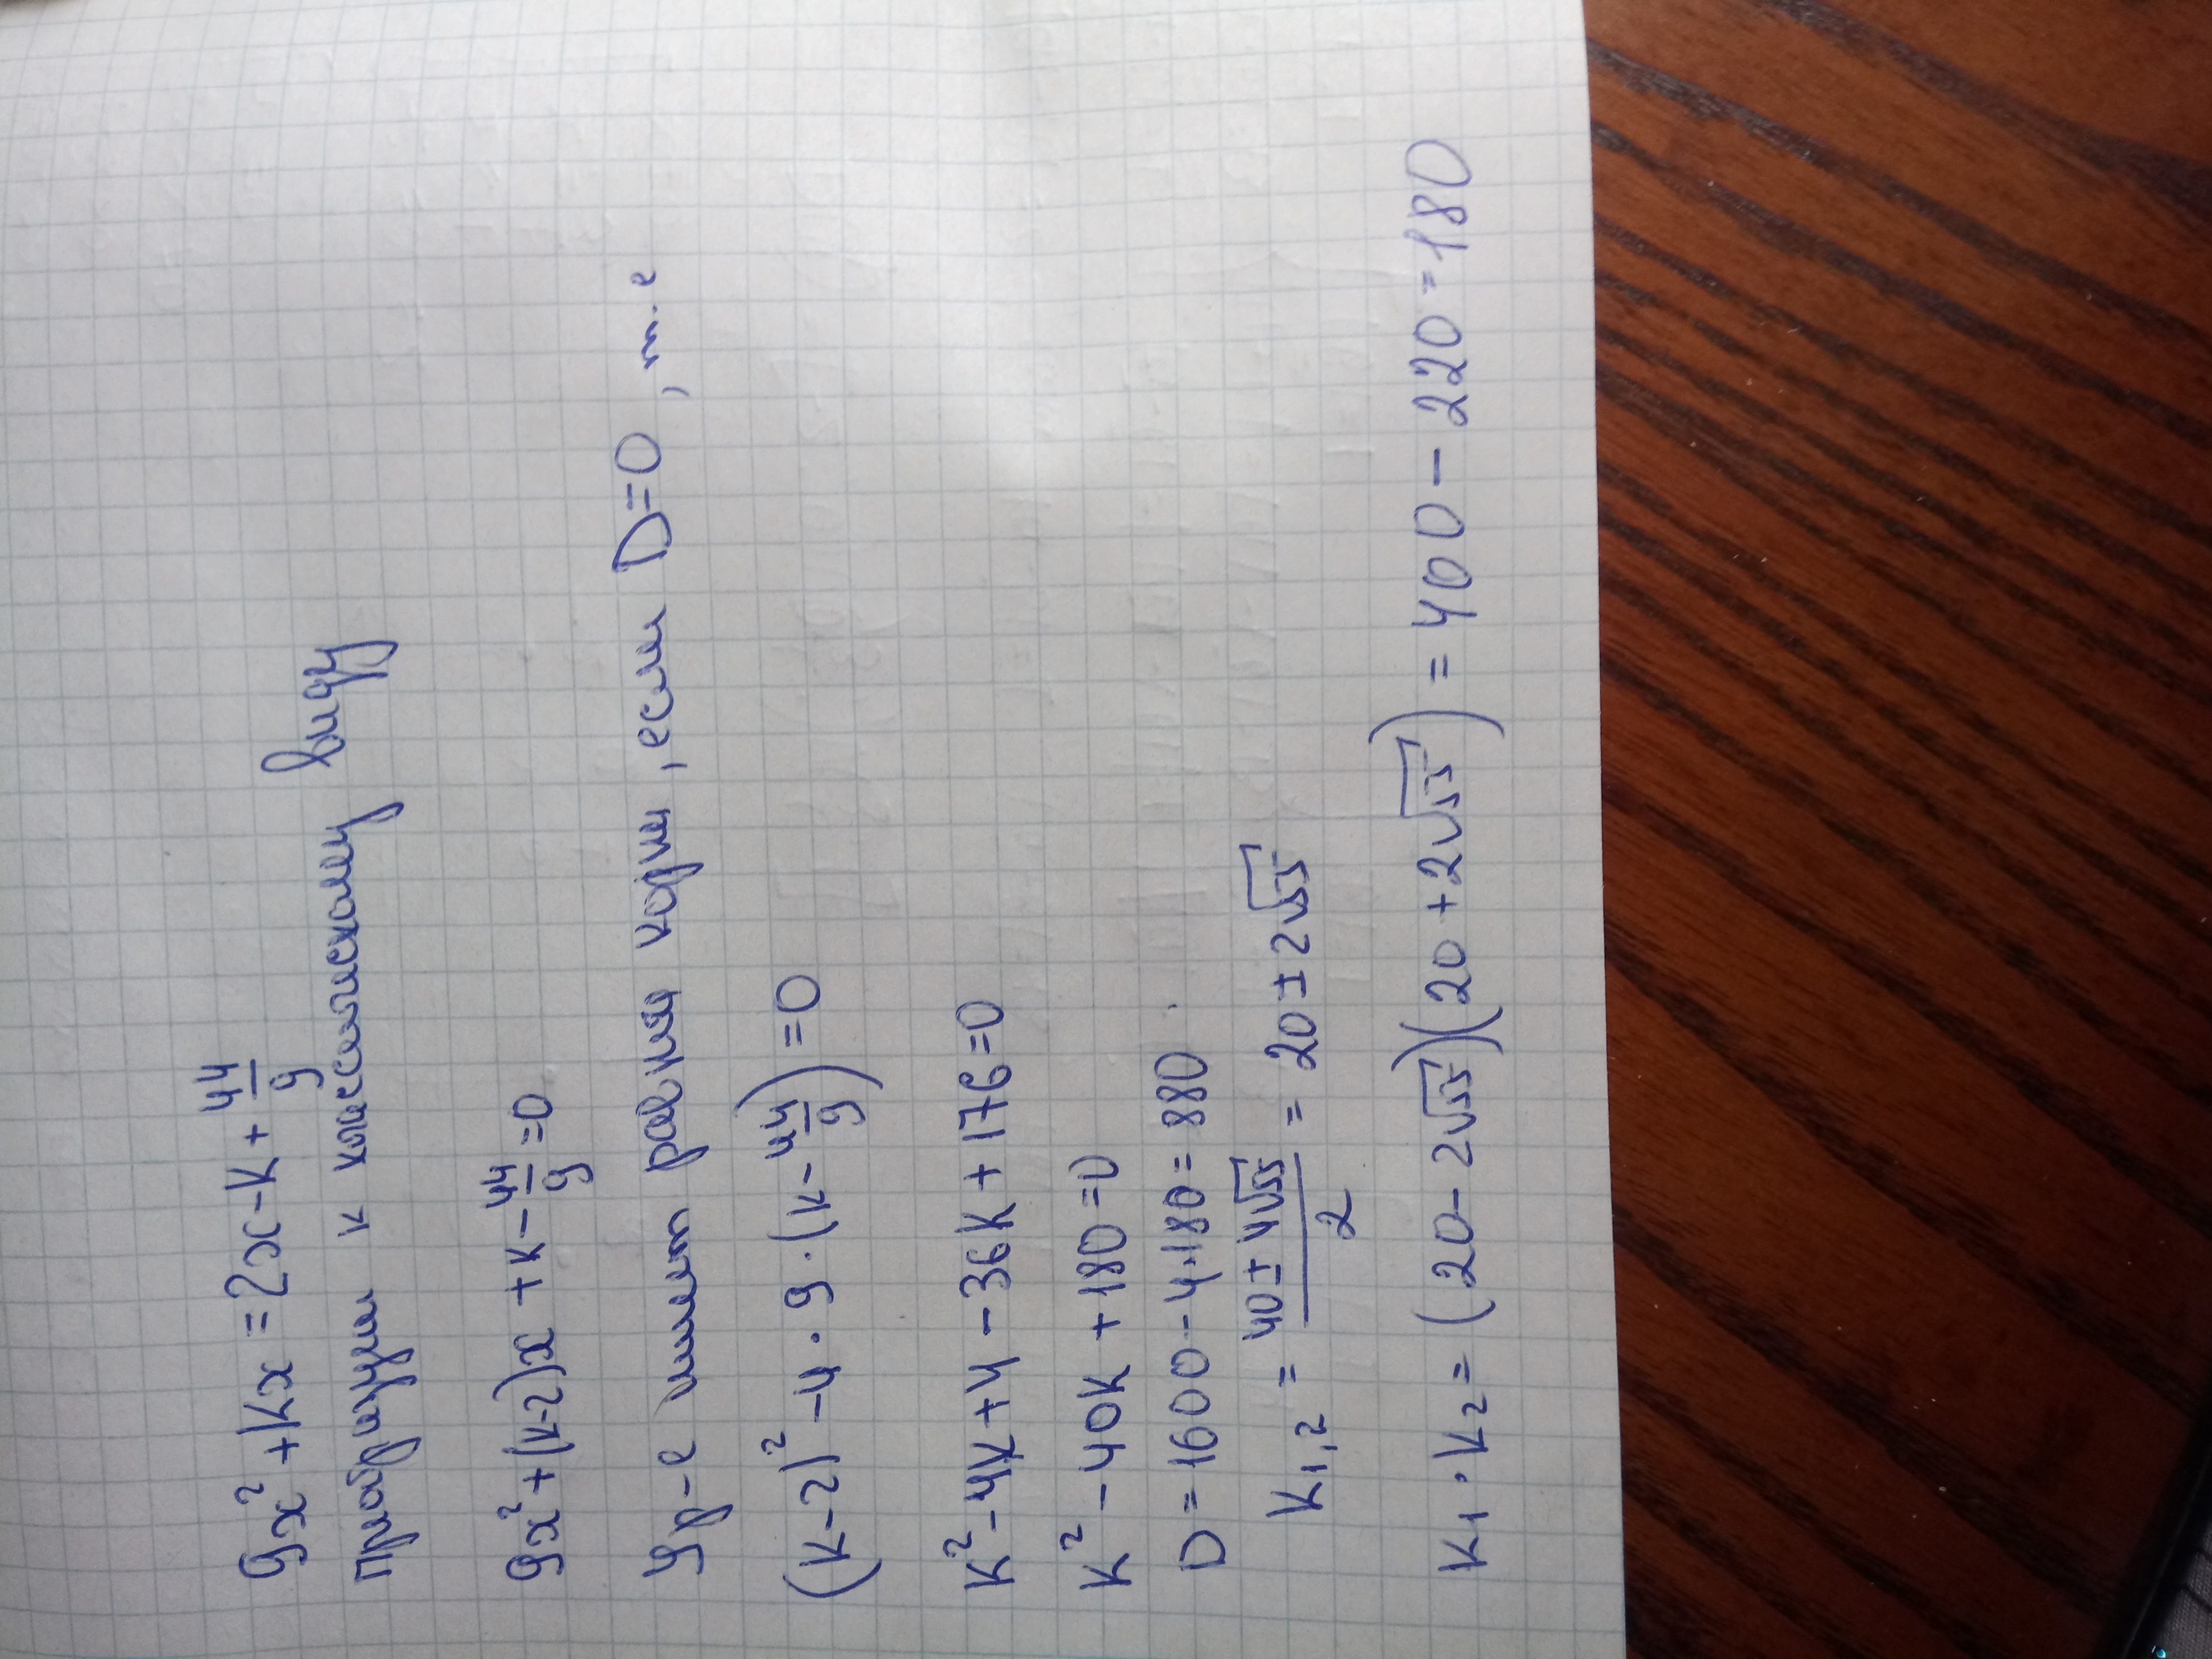 9x² + kx = 2x - k + 44/9
Приведём к классическому виду
9x² + (k-2)x + k - 44/9 = 0
Ур-е имеет равные корни, если D=0, т.е
(k-2)² - 4 · 9 · (k - 44/9) = 0
k² - 4k + 4 - 36k + 176 = 0
k² - 40k + 180 = 0
D = 1600 - 4·180 = 880
k₁,₂ = (40 ± 4√55)/2 = 20 ± 2√55
k₁ · k₂ = (20 - 2√55)(20 + 2√55) = 400 - 220 = 180